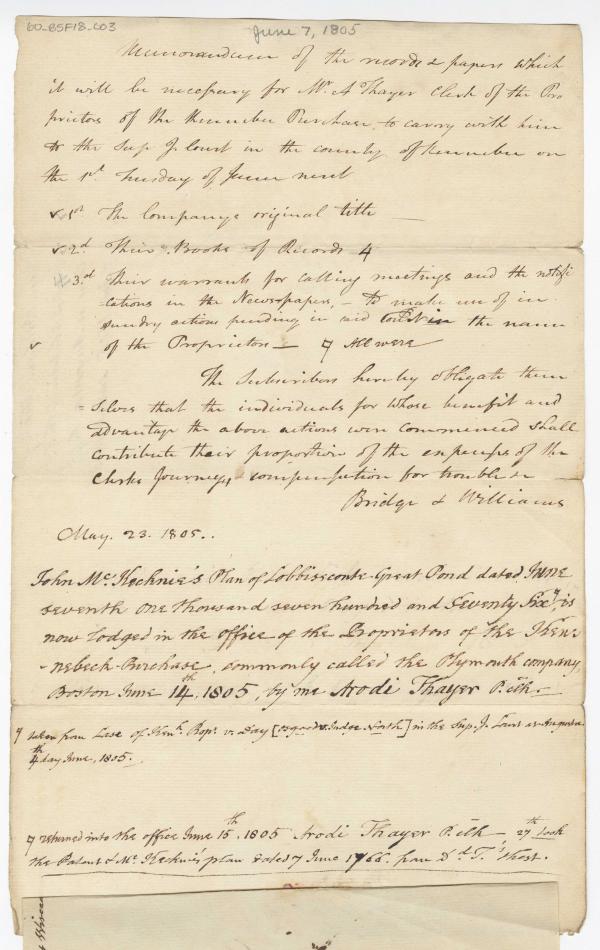 60-B5F18-C03
June 7, 1805
Memorandum of the records & papers which
it will be necessary for Mr. A Thayer Clerk of the Pro
prietors of the Kennebec Purchase to carry with him
to the Sup J. Court in the county of Kennebec on
the 1st Tuesday of June next
1st The Companys original title —
2d Their Books of Records 4
3d Their warrants for calling meetings and the notifi
=cations in the Newspapers, – to make use of in
sundry actions pending in said Court in the name
of the Proprietors — All were
The Subscribers hereby obligate them
=selves that the individuals for whose benefit and
advantage the above actions were commenced shall
contribute their proportion of the expenses of the
Clerks Journey, compensation for trouble &c
Bridge & Williams
May. 23. 1805..
John McKechnie's Plan of Cobbiseconte-Great Pond dated June
seventh one thousand seven hundred and Seventy Six, is
now lodged in the office of the Proprietors of the Ken=
=nebeck-Purchase, commonly called the Plymouth company,
Boston June 14th 1805, by me Arodi Thayer P. Clk.
taken from Case of Kenk. Props. v. Day in the Sup. J. Court at Augusta
4th day June, 1805.
returned into the office June 15th 1805 Arodi Thayer P. Clk — 27th took
the Patent & Mc Kechnie's plan dated 7 June 1766. from